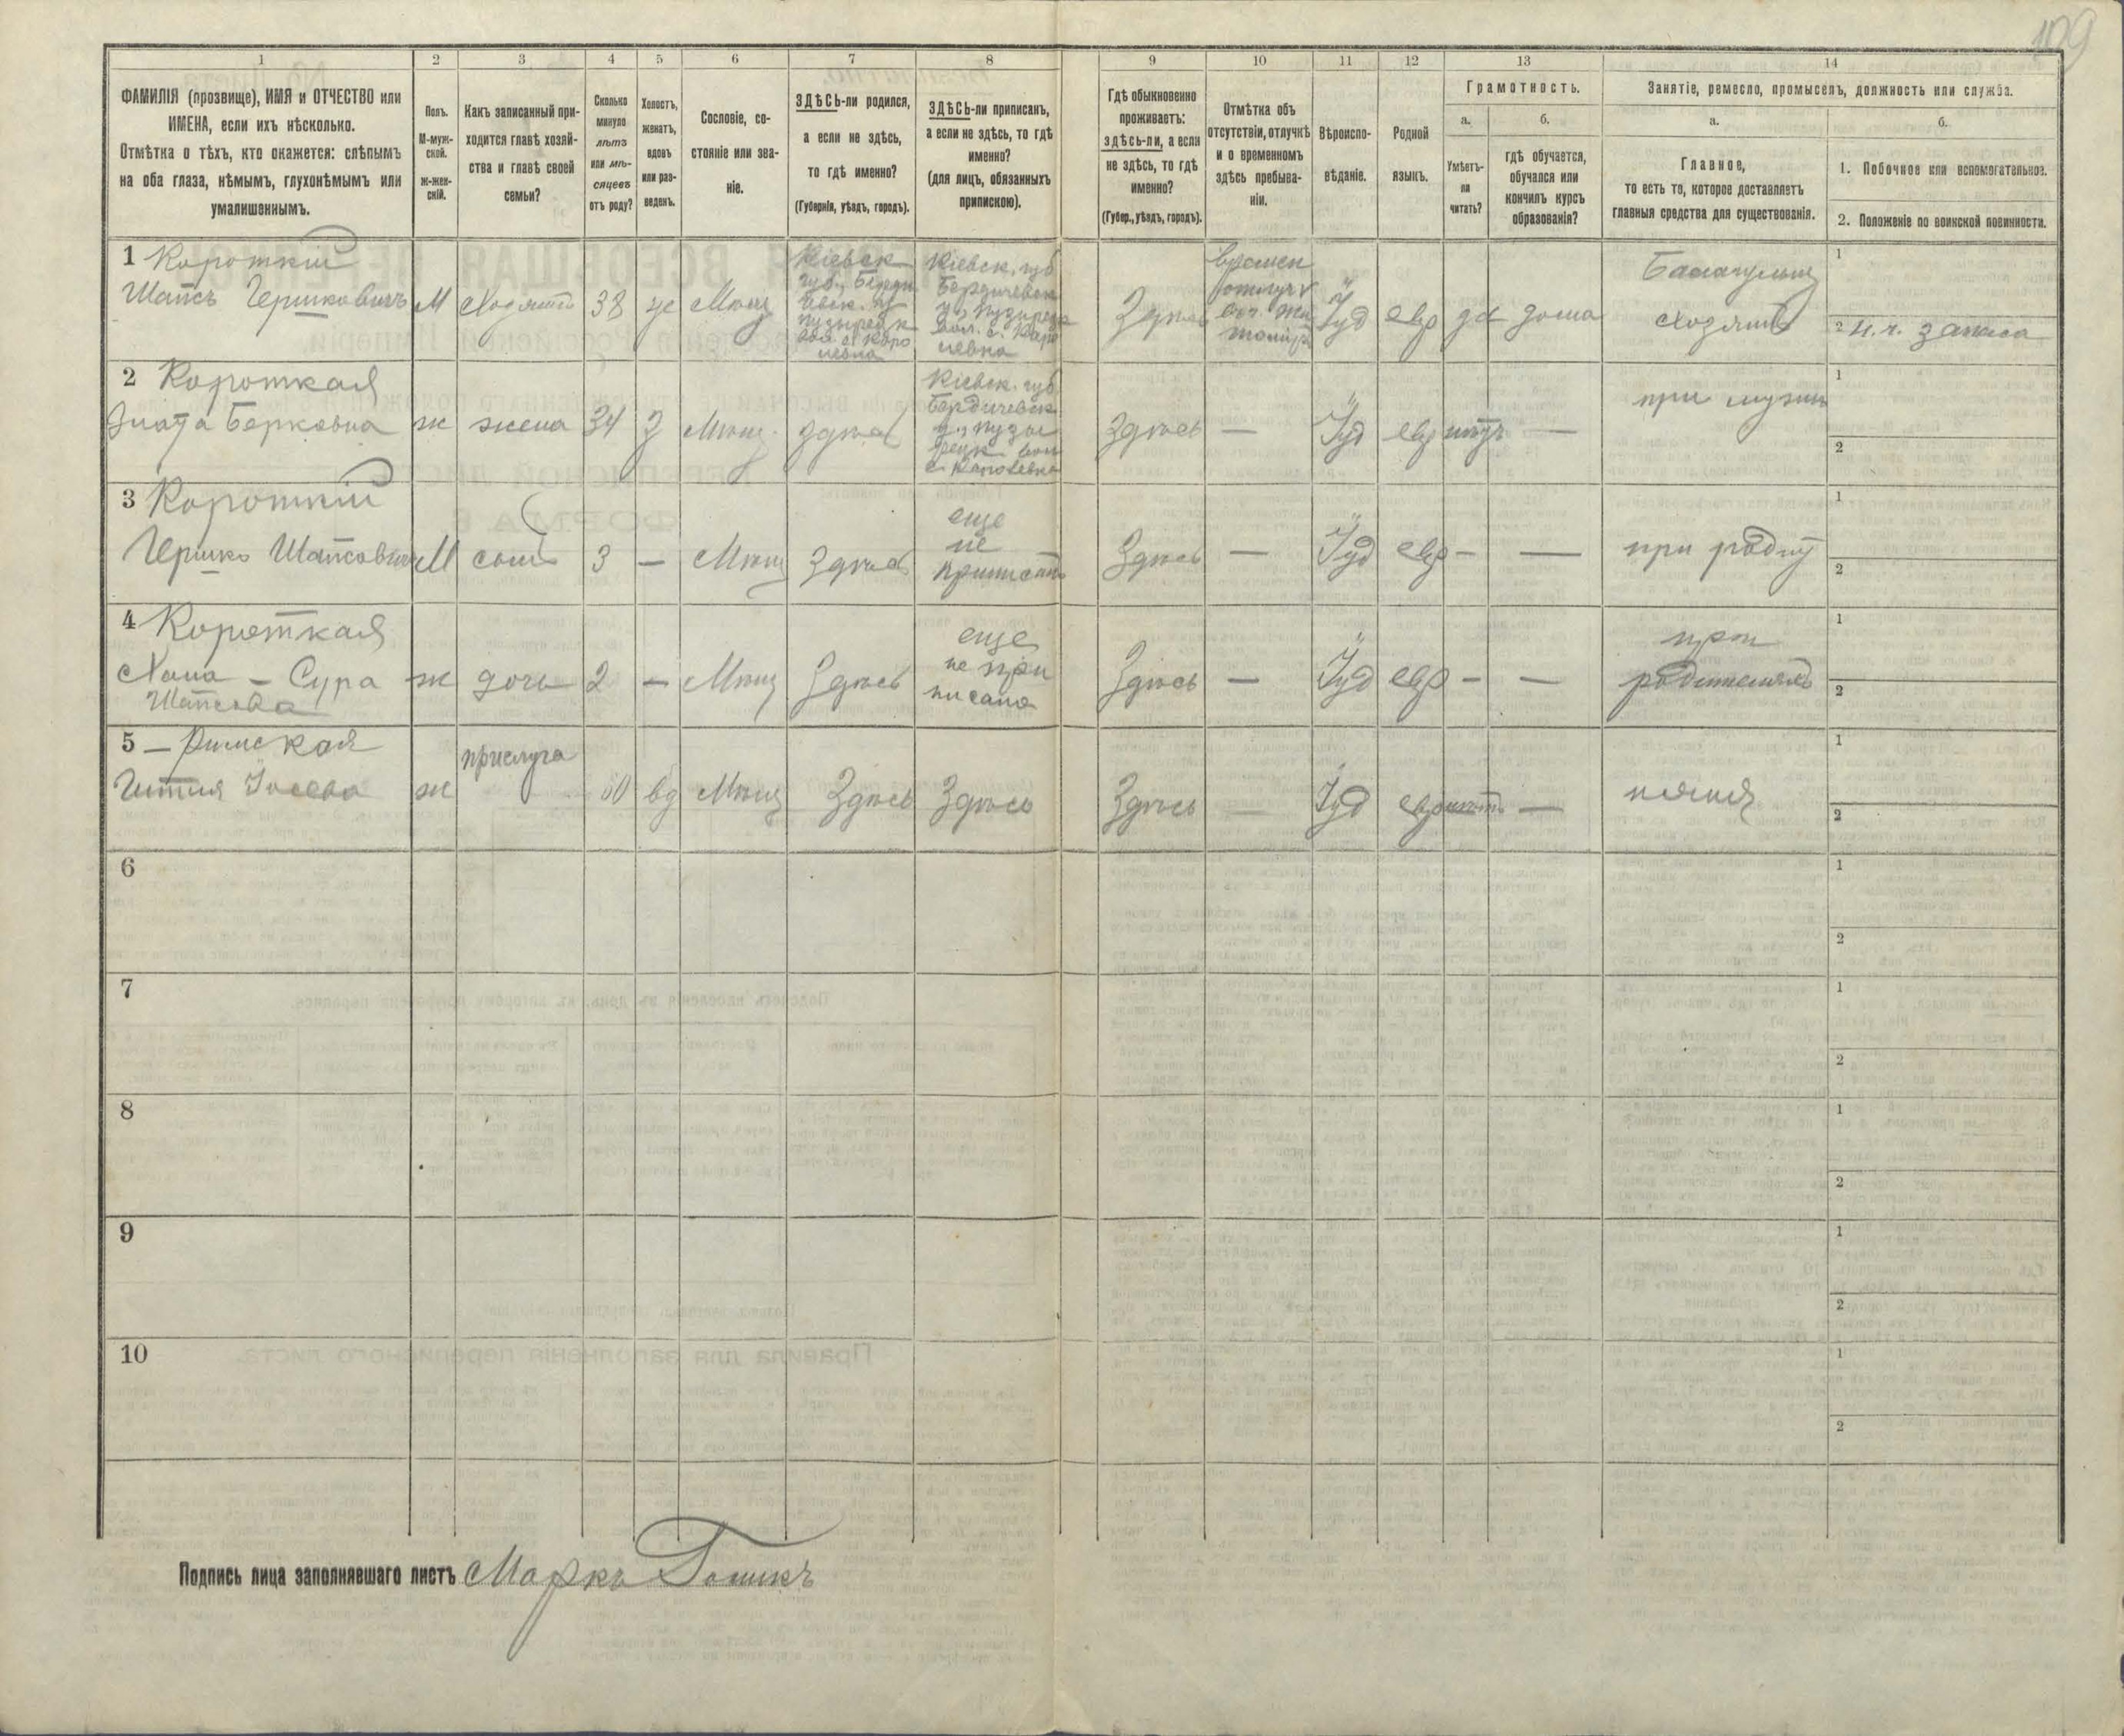 109
1
2
3
4
5
6
7
8
9
10
11
12
13
14
ФАМИЛІЯ (прозвище), ИМЯ и ОТЧЕСТВО или
ИМЕНА, если ихъ нѣсколько.
Отмѣтка о тѣхъ, кто окажется: слѣпымъ
на оба глаза, нѣмымъ, глухонѣмымъ или
умалишеннымъ.
Полъ.
М-муж-
ской.
Ж-жен-
скій.
Какъ записанный при-
ходится главѣ хозяй-
ства и главѣ своей
семьи?
Сколько
минуло
лѣтъ
или мѣ-
сяцевъ
отъ роду?
Холостъ,
женатъ,
вдовъ
или раз-
веденъ.
Сословіе, со-
стояніе или зва-
ніе.
ЗДѢСЬ-ли родился,
а если не здѣсь,
то гдѣ именно?
(Губернія, уѣздъ, городъ).
ЗДѢСЬ-ли приписанъ,
а если не здѣсь, то гдѣ
именно?
(для лицъ, обязанныхъ
припискою).
Гдѣ обыкновенно
проживаетъ:
здѣсь-ли, а если
не здѣсь, то гдѣ
именно?
(Губер., уѣздъ, городъ).
Отмѣтка объ
отсутствіи, отлучкѣ
и о временномъ
здѣсь пребыва-
ніи.
Вѣроиспо-
вѣданіе.
Родной
языкъ.
Грамотность.
а.
Умѣетъ-
ли
читать?
б.
гдѣ обучается,
обучался или
кончилъ курсъ
образованія?
Занятіе, ремесло, промыселъ, должность или служба.
а.
Главное,
то есть то, которое доставляетъ
главныя средства для существованія.
б.
1. Побочное или вспомогательное.
2. Положеніе по воинской повинности.
1 Короткій
Шапсъ Гершковичъ
М
Хозяинъ
38
же
Мѣщ
Кіевск
губ., Берди
чевск. у
Пузырецк
вол. с. Каро
левка
Кіевск. губ
Бердичевск
у., Пузырецк
вол. с. Каро
левка
Здѣсь
времен
отлуч
въ г. Жи
томіръ
Іуд
евр
да
дома
Балагульщ
хозяинъ
1
2 н. ч. запаса
2 Короткая
Злата Берковна
ж
жена
34
з
Мѣщ.
здѣсь
Кіевск. губ
Бердичевск
у., Пузы
рецк вол
с. Каролевка
Здѣсь
—
Іуд
евр
нѣтъ
—
при мужѣ
1
2
3 Короткій
Гершко Шапсовичъ
М
сынъ
3
—
Мѣщ
Здѣсь
еще
не
приписанъ
Здѣсь
—
Іуд
евр
—
—
при родит
1
2
4 Короткая
Хана - Сура
Шапсова
ж
дочь
2
—
Мѣщ
Здѣсь
еще
не при
писана
Здѣсь
—
Іуд
евр
—
—
при
родителяхъ
1
2
5 — Римская
Гитля Іосева
ж
прислуга
вд
Мѣщ
Здѣсь
Здѣсь
Здѣсь
—
Іуд
евр
нѣтъ
—
няня
1
2
6
1
2
7
1
2
8
1
2
9
1
2
10
1
2
Подпись лица заполнявшаго листъ Маркъ